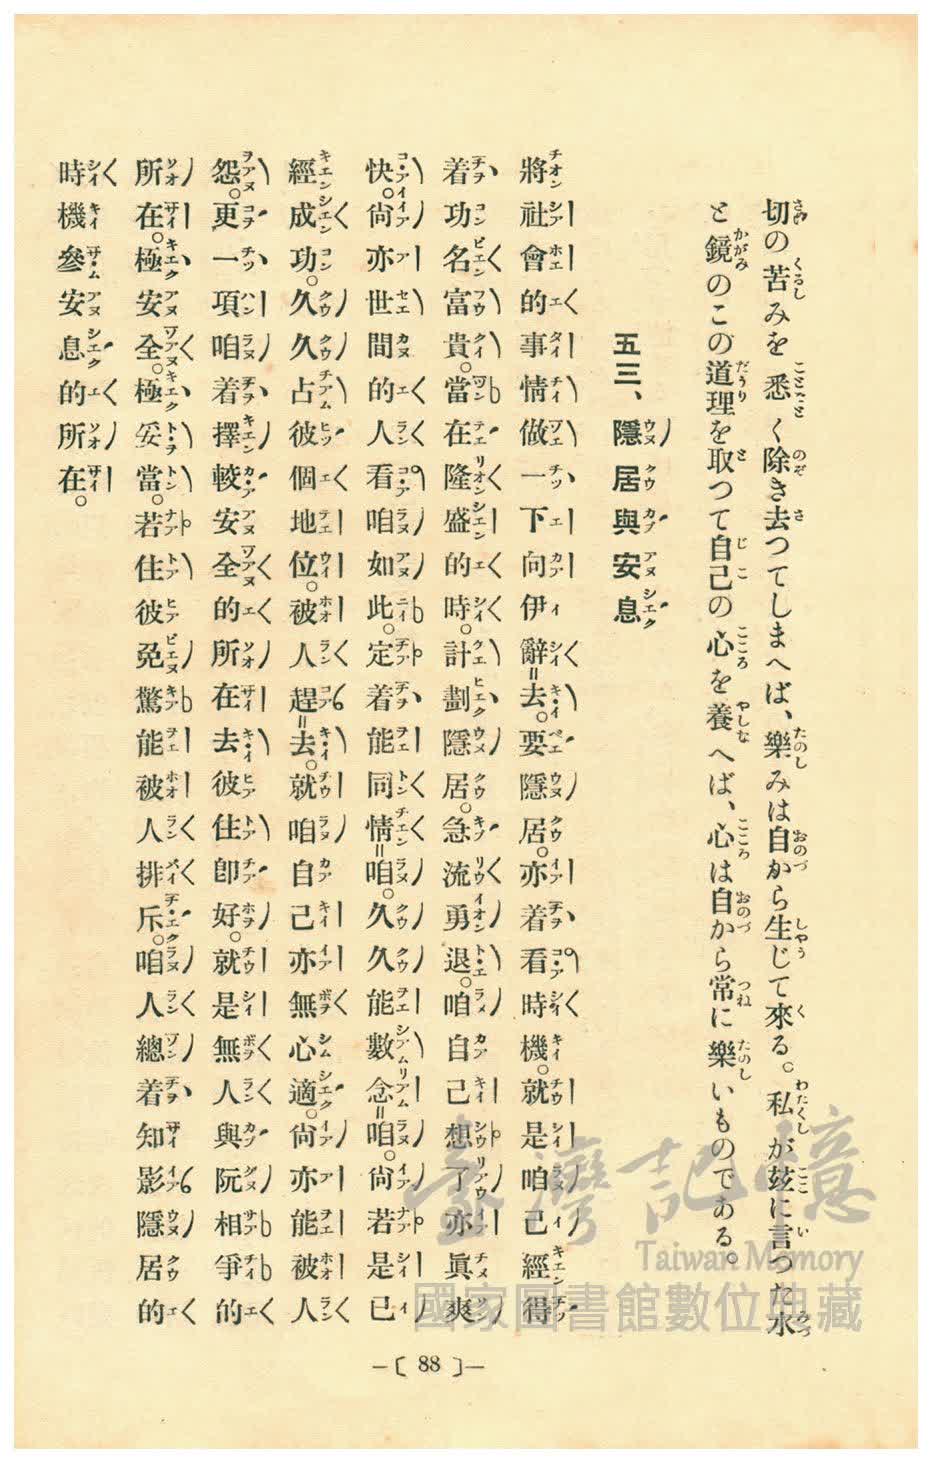 切の苦みを悉く除き去つてしまへば、樂みは自から生じて來る。私が玆に言つた水
と鏡のこの道理を取つて自己の心を養へば、心は自から常に樂しいものである。
五三、隱居與安息
將社會的事情做一下向伊辭=去。要隱居。亦着看時機。就是咱己經得
着功名富貴。當在隆盛的時。計劃隱居。急流勇退。咱自己想了亦眞爽
快。尙亦世間的人看咱如此。定着能同情=咱。久久能數念=咱。尙若是已
經成功。久久占彼個地位。被人趕=去。就咱自己亦無心適。尙亦能被人
怨。更一項咱着擇較安全的所在去彼住卽好。就是無人與阮相爭的
所在。極安全。極妥當。若住彼免驚能被人排斥。咱人總着知影隱居的
時機參安息的所在。
—〔 88 〕—
臺灣記憶
Taiwan Memory
國家圖書館數位典藏